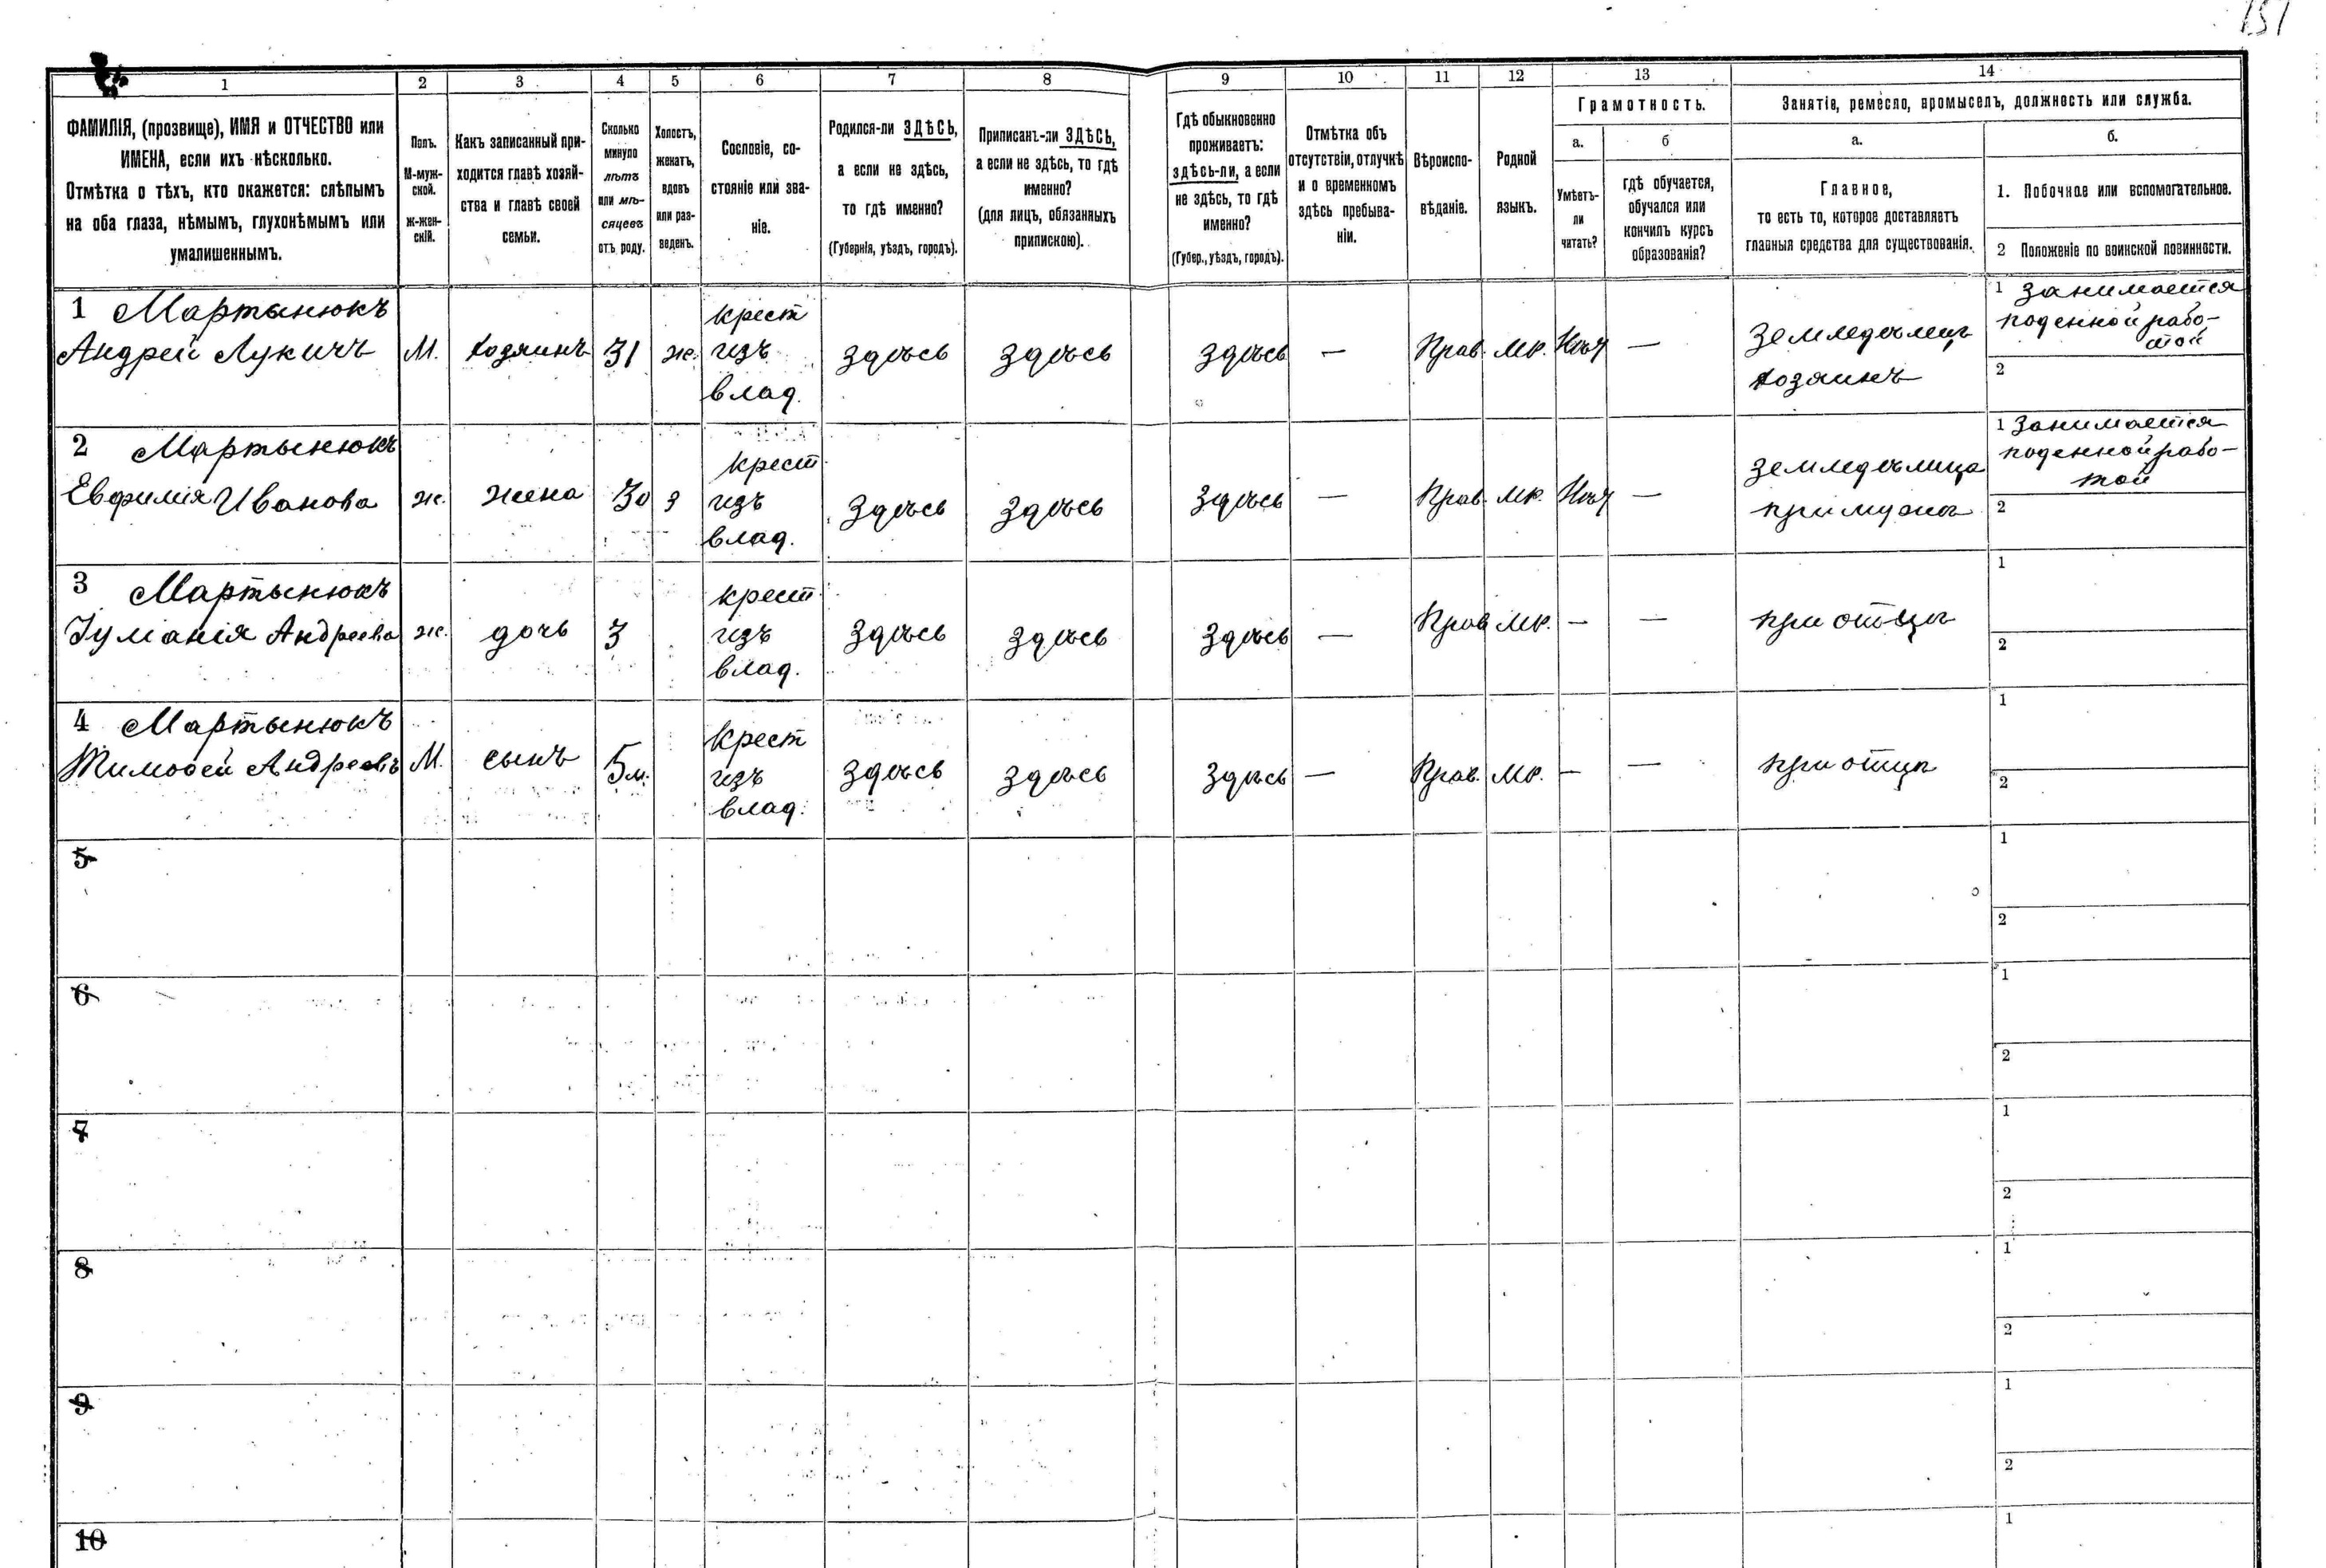 151
1 2 3 4 5 6 7 8 9 10 11 12 13 14
ФАМИЛІЯ, (прозвище), ИМЯ и ОТЧЕСТВО или
ИМЕНА, если ихъ нѣсколько.
Отмѣтка о тѣхъ, кто окажется: слѣпымъ
на оба глаза, нѣмымъ, глухонѣмымъ или
умалишеннымъ.
Полъ.
М-муж-
ской.
ж-жен-
скій.
Какъ записанный при-
ходится главѣ хозяй-
ства и главѣ своей
семьи.
Сколько
минуло
лѣтъ
или мѣ-
сяцевъ
отъ роду.
Холостъ,
женатъ,
вдовъ
или раз-
веденъ.
Сословіе, со-
стояніе или зва-
ніе.
Родился-ли ЗДѢСЬ,
а если не здѣсь,
то гдѣ именно?
(Губернія, уѣздъ, городъ).
Приписанъ-ли ЗДѢСЬ,
а если не здѣсь, то гдѣ
именно?
(для лицъ, обязанныхъ
припискою).
Гдѣ обыкновенно
проживаетъ:
здѣсь-ли, а если
не здѣсь, то гдѣ
именно?
(Губер., уѣздъ, городъ).
Отмѣтка объ
отсутствіи, отлучкѣ
и о временномъ
здѣсь пребыва-
ніи.
Вѣроиспо-
вѣданіе.
Родной
языкъ.
Грамотность.
а.
Умѣетъ-
ли
читать?
б
гдѣ обучается,
обучался или
кончилъ курсъ
образованія?
Занятіе, ремесло, промыселъ, должность или служба.
а.
Главное,
то есть то, которое доставляетъ
главныя средства для существованія.
б.
1. Побочное или вспомогательное.
2 Положеніе по воинской повинности.
1 Мартынюкъ
Андрей Лукичъ
М.
хозяинъ
31
ж.
крест
изъ
влад.
здѣсь
здѣсь
здѣсь
—
Прав.
мр.
Нѣт
—
земледѣлецъ
хозяинъ
1 занимается
поденной рабо-
той
2
2 Мартынюкъ
Евфимія Иванова
ж.
жена
30
з
крест.
изъ
влад.
здѣсь
здѣсь
здѣсь
—
Прав.
мр.
Нѣт
—
земледѣлица
при мужѣ
1 занимается
поденной рабо-
той
2
3 Мартынюкъ
Іуліанія Андреева
ж.
дочь
3
крест.
изъ
влад.
здѣсь
здѣсь
здѣсь
—
Прав
мр.
—
—
при отцѣ
1
2
4 Мартынюкъ
Тимоѳей Андреевъ
М.
сынъ
5 м.
крест
изъ
влад.
здѣсь
здѣсь
здѣсь
—
Прав.
мр.
—
—
при отцѣ
1
2
5
1
2
6
1
2
7
1
2
8
1
2
9
1
2
10
1